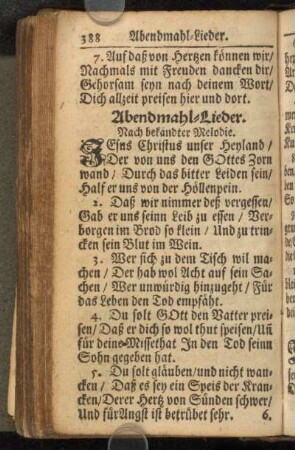 388 Abendmahl-Lieder.
7. Auf daß von Hertzen können wir/
Nachmals mit Freuden dancken dir/
Gehorsam seyn nach deinem Wort/
Dich allzeit preisen hier und dort.
Abendmahl-Lieder.
Nach bekandter Melodie.
JEsus Christus unser Heyland/
Der von uns den GOttes Zorn
wand/ Durch das bitter Leiden sein/
Half er uns von der Höllenpein.
2. Daß wir nimmer deß vergessen/
Gab er uns seinn Leib zu essen/ Ver-
borgen im Brod so klein/ Und zu trin-
cken sein Blut im Wein.
3. Wer sich zu dem Tisch wil ma-
chen/ Der hab wol Acht auf sein Sa-
chen/ Wer unwürdig hinzugeht/ Für
das Leben den Tod empfäht.
4. Du solt GOtt den Vatter prei-
sen/ Daß er dich so wol thut speisen/ Uñ
für deine Missethat In den Tod seinn
Sohn gegeben hat.
5. Du solt gläuben/ und nicht wan-
cken/ Daß es sey ein Speis der Kran-
cken/ Derer Hertz von Sünden schwer/
Und für Angst ist betrübet sehr. 6.